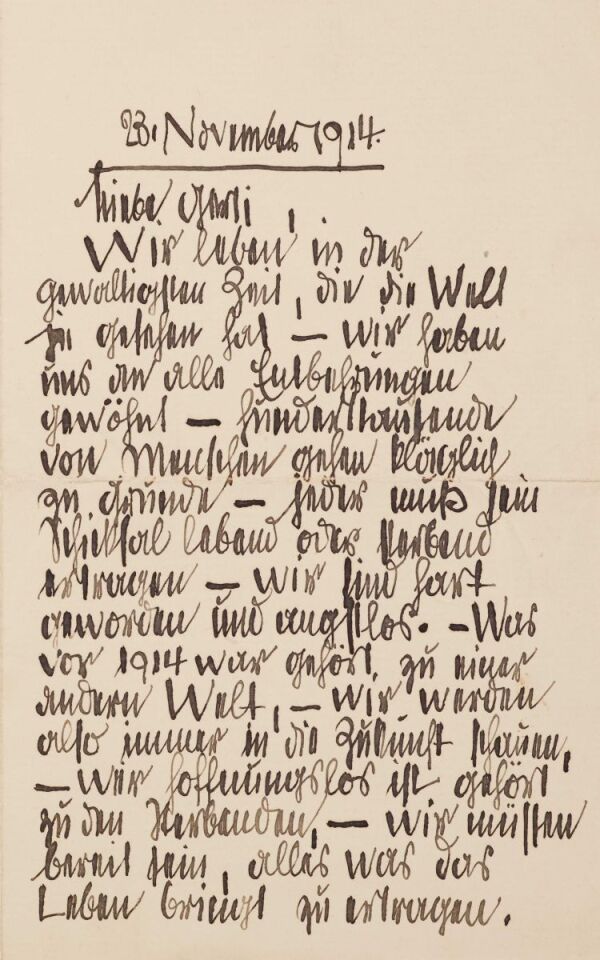 23. November 1914.
Liebe Gerti,
Wir leben in der
gewaltigsten Zeit, die die Welt
je gesehen hat — wir haben
uns an alle Entbehrungen
gewöhnt — hunderttausende
von Menschen gehen kläglich
zu Grunde — jeder muß sein
Schicksal lebend oder sterbend
ertragen — wir sind hart
geworden und angstlos. — Was
vor 1914 war gehört zu einer
andern Welt, — wir werden
also immer in die Zukunft schauen,
— wer hoffnungslos ist gehört
zu den Sterbenden, — wir müssen
bereit sein, alles was das
Leben bringt zu ertragen.